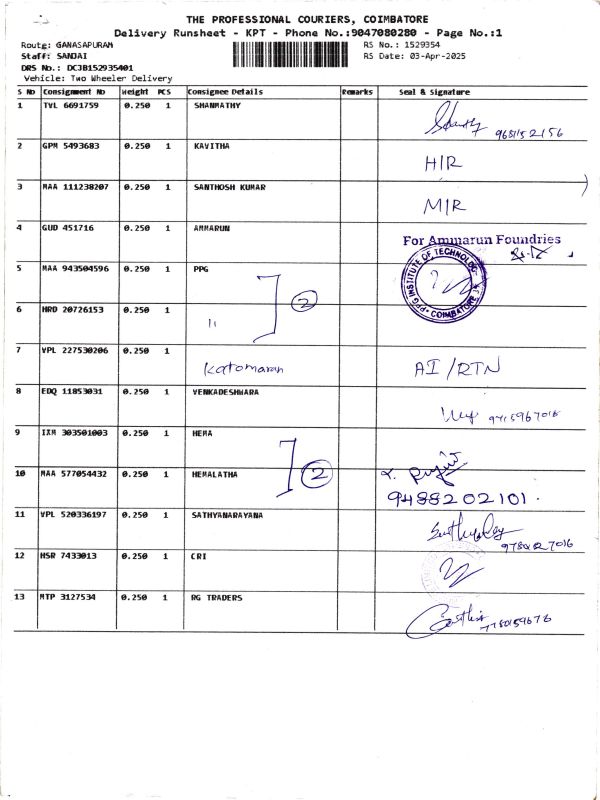 THE PROFESSIONAL COURIERS, COIMBATORE
Delivery Runsheet - KPT - Phone No.:9047080280 - Page No.:1
Routg: GANASAPURAM RS No.: 1529354
Staff: SANJAI RS Date: 03-Apr-2025
DRS No.: DCJB152935401
Vehicle: Two Wheeler Delivery
S No Consignment No Weight PCS Consignee Details Remarks Seal & Signature
1 TVL 6691759 0.250 1 SHANMATHY
2 GPM 5493683 0.250 1 KAVITHA H/R
3 MAA 111238207 0.250 1 SANTHOSH KUMAR M/R
4 GUD 451716 0.250 1 AMMARUN For Ammarun Foundries
5 MAA 943504596 0.250 1 PPG PPG INSTITUTE OF TECHNOLOGY COIMBATORE
2
6 HRD 20726153 0.250 1 "
7 VPL 227530206 0.250 1 Katomaran AI/RTN
8 EDQ 11853031 0.250 1 VENKADESHWARA
9 IXM 303501003 0.250 1 HEMA
2
10 MAA 577054432 0.250 1 HEMALATHA 9488202101.
11 VPL 520336197 0.250 1 SATHYANARAYANA
12 HSR 7433013 0.250 1 CRI
13 MTP 3127534 0.250 1 RG TRADERS